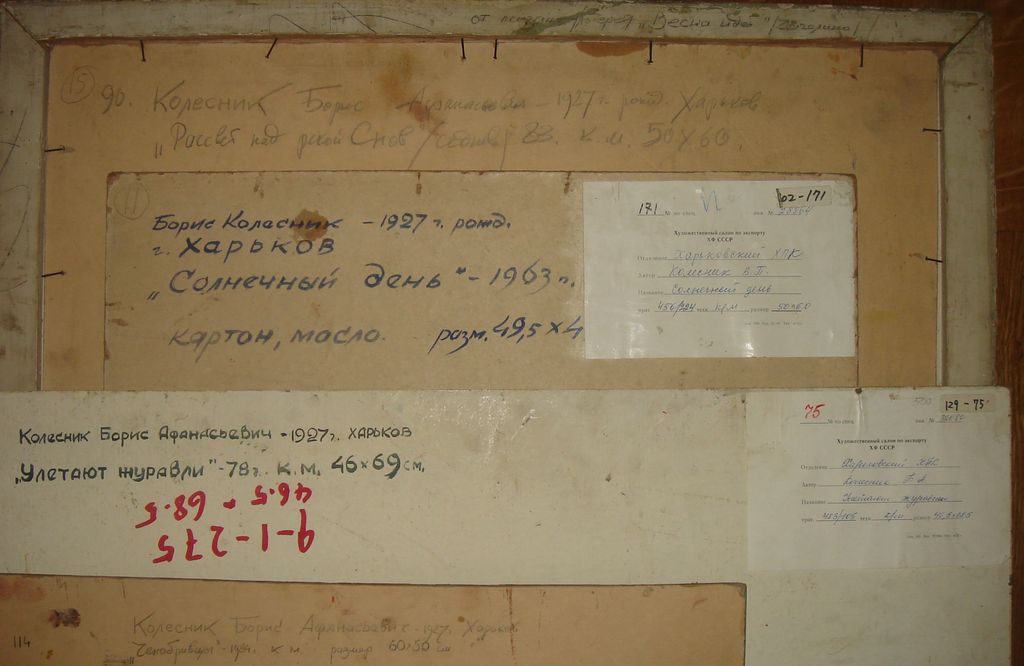 от "Весна идёт"
15
90. Колесник Борис Афанасьевич - 1927 г. рожд. Харьков
„Рассвет над рекой Снов" 83. к.м. 50х60.
11
Борис Колесник - 1927 г. рожд.
г. Харьков
„Солнечный день" - 1963 г.
картон, масло. разм. 49,5 х 4
171 № по спец. 02-171
Художественный салон по экспорту
ХФ СССР
Отделение Харьковский ХПК
Автор Колесник Б.П.
Название Солнечный день
456/224 к/м размер 50х60
Колесник Борис Афанасьевич - 1927 г. Харьков
„Улетают журавли" - 78 г. к.м. 46х69 см.
46.5 * 68.5
9-1-275
75 № по спец. 129-75
Художественный салон по экспорту
ХФ СССР
Отделение
Автор Колесник Б.А.
Название Улетают журавли
размер
Колесник Борис Афанасьевич - 1927. Харьков
114
- к.м. размер 60х50 см